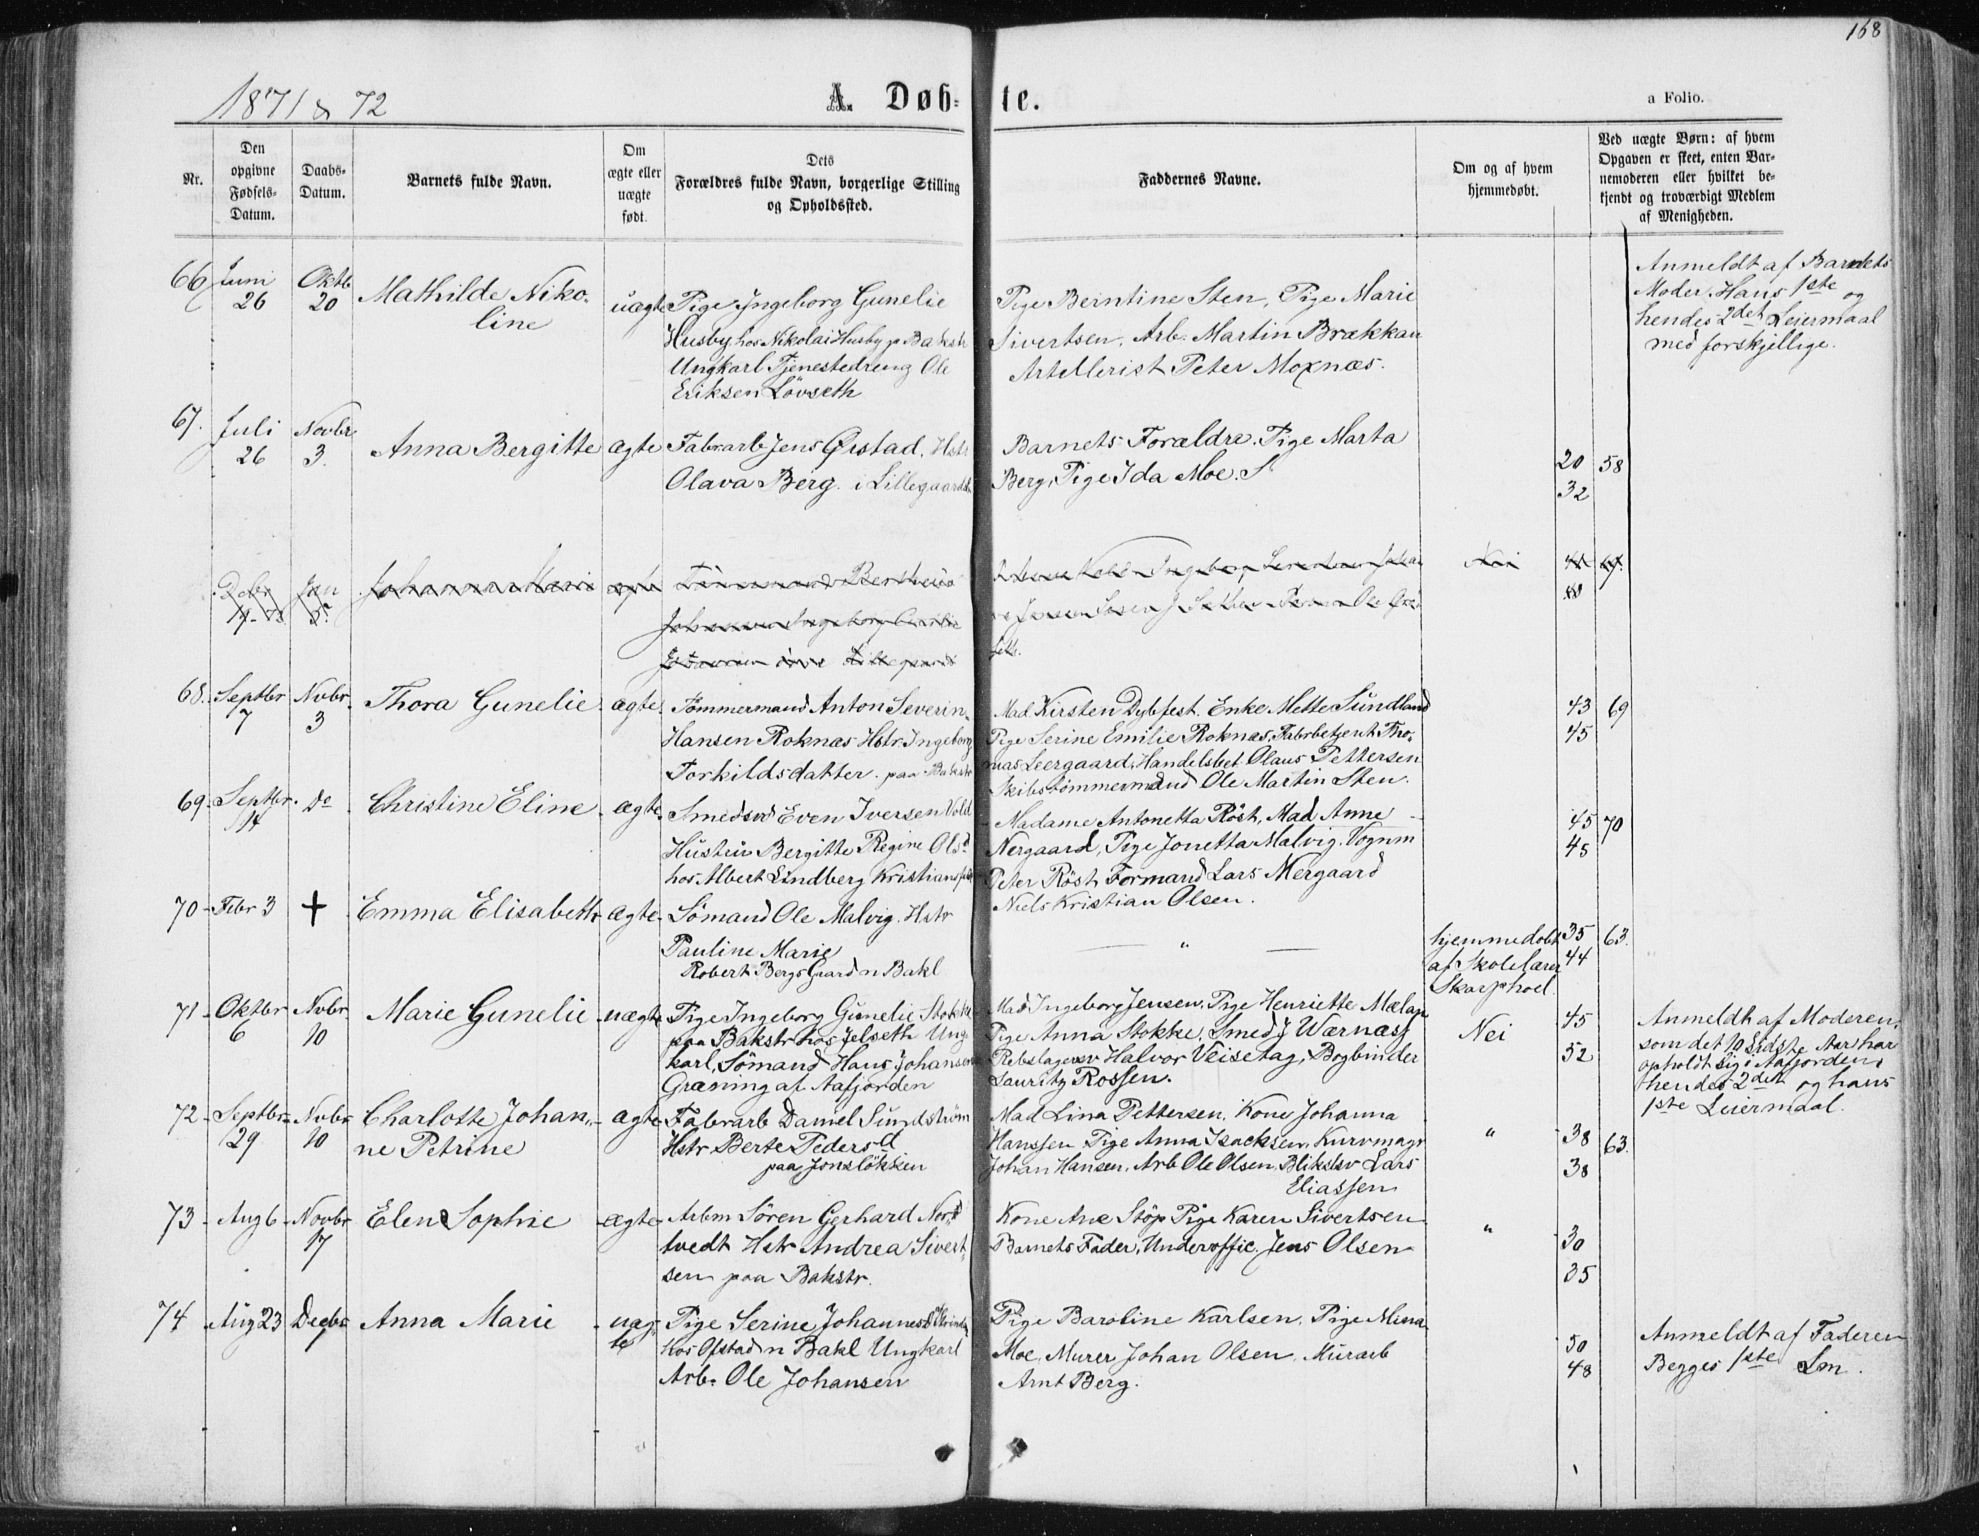 168
1871 & 72
A. Døb-te.
a Folio.
Nr.
Den opgivne Fødsels-Datum.
Daabs-Datum.
Barnets fulde Navn.
Om ægte eller uægte født.
Dets Forældres fulde Navn, borgerlige Stilling og Opholdssted.
Faddernes Navne.
Om og af hvem hjemmedøbt.
Ved uægte Børn: af hvem Opgaven er skeet, enten Barnemoderen eller hvilket bekjendt og troværdigt Medlem af Menigheden.
66 Juni 26 Oktb 20 Mathilde Niko-
line
uægte Pige Ingeborg Gunelie
Husby hos Nikolai Husby p Bakstr
Ungkarl Tjenestedreng Ole
Eriksen Lövseth
Pige Berntine Sten, Pige Marie
Sivertsen, Arb. Martin Brækkan
Artillerist Peter Moxnæs.
Anmeldt af Barnets
Moder. Hans 1ste og
hendes 2det Leiermaal
med forskjellige.
67. Juli 26 Novbr 3. Anna Bergitte ægte Fabrarb Jens Ørstad, Hstr
Olava Berg. i Lillegaardsb
Barnets Forældre. Pige Marta
Berg, Pige Ida Moe. S
20 58
32
Debr Jan Johanna Marie ægte
Nei
68. Septbr 7 Nvbr. 3 Thora Gunelie ægte. Tømmermand Anton Severin
Hansen Roknæs Hstr. Ingeborg
Torkildsdatter. paa Bakstr
Mad Kirsten Dybfest. Enke Mette Sundland
Pige Serine Emilie Roknæs, Fabrbetjent Tho-
mas Leergaard, Handelsbet Olaus Pettersen
Skibstömmermand Ole Martin Sten.
43 69
45
69. Septbr. 14 Do Christine Eline ægte. Smedsvd Even Iversen Vold
Hustru Bergitte Regine Olsd
hos Albert Lindberg Kristiansf
Madame Antonetta Röst, Mad Anne
Nergaard, Pige Jonetta Malvig. Vognm
Peter Röst Formand Lars Nergaard
Niels Kristian Olsen.
45 70
45
70 Fbr 3 + Emma Elisabeth ægte. Sömand Ole Malvig. Hstr
Pauline Marie
Robert Bergs Gaard n Bakl
"
hjemmedøbt
af Skolelærer
Skarphoel.
35 63.
44
71 Oktbr 6 Nvbr 10 Marie Gunelie uægte Pige Ingeborg Gunelie Stokke
paa Bakstr hos Jelseth Ung-
karl, Sömand Hans Johansen
Græning af Aafjorden
Mad Ingeborg Jensen, Pige Henriette Mælap
Pige Anna Stokke, Smed J Wærnæss
Rebslagersv Halvor Veisetag, Bogbinder
Lauritz Rossen.
Nei
45
52
Anmeldt af Moderen,
som det 10 sidste Aar har
opholdt sig i Aafjorden,
hendes 2det og hans
1ste Leiermaal.
72 Septbr 29 Nvbr 10 Charlotte Johan-
ne Petrine
ægte Fabrarb Daniel Sundström
Hstr Berte Pedersd
paa Jonslökken
Mad Lina Pettersen, Kone Johanna
Hanssen Pige Anna Isacksen, Kurvmagr
Johan Hansen, Arb Ole Olsen, Blikslsv Lars
Eliassen
"
38 63.
38
73 Aug 6 Novbr 17 Elen Sophie ægte Arbm Sören Gerhard Nord-
tvedt Hstr Andrea Sivert-
sen paa Bakstr.
Kone Ane Stöp Pige Karen Sivertsen
Barnets Fader, Underoffic. Jens Olsen
"
30
35
74 Aug 23 Decbr Anna Marie uæg-
te
Pige Serine Johannesd
hos Ofstad n Bakl Ungkarl
Arb. Ole Johansen
Pige Baroline Karlsen, Pige Mina
Moe, Murer Johan Olsen, Murarb
Arnt Berg.
50
48
Anmeldt af Faderen
Begges 1ste Lm.